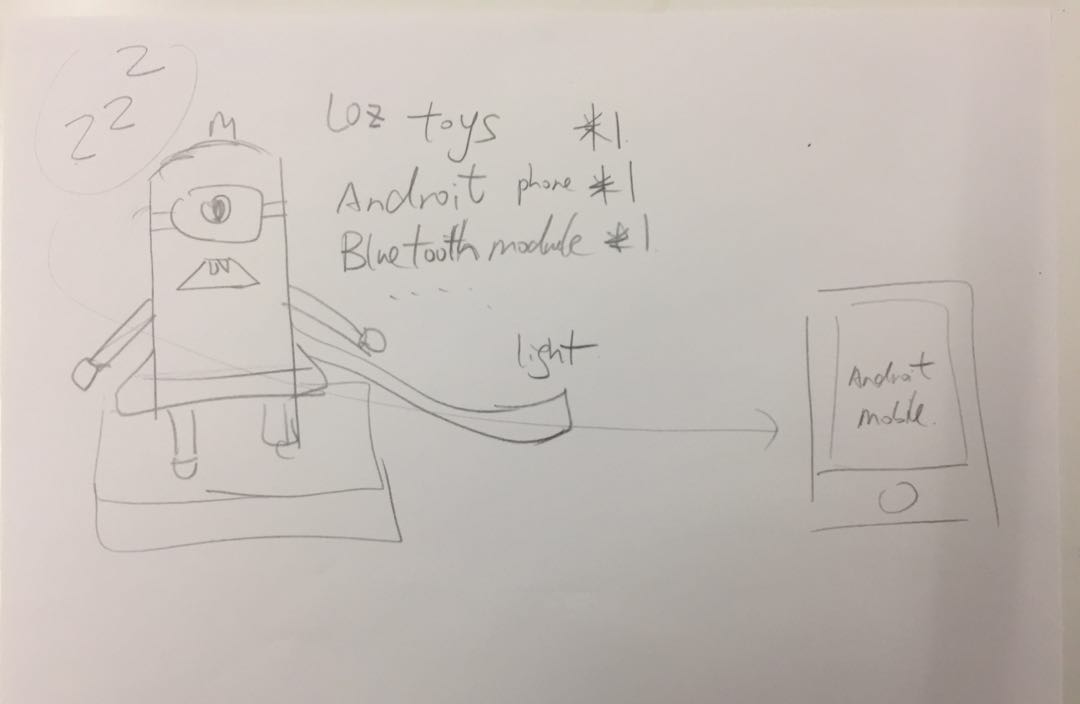 z
z z
Loz toys *1
Androit phone *1
Bluetooth module *1
.....
light
Androit
mobile.